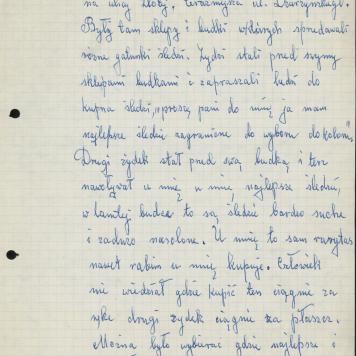 na ulicy Złotej, teraźniejsza ul.
Były tam sklepy i budki w których spredawali
różne gatunki śledzi. Żydzi stali pred swymy
sklepami budkami i zapraszali ludzi do
kupna śledzi, "proszę pani do mię ja mam
najlepsze śledzie zagraniczne do wyboru do koloru"
Drugi żydek stał pred swą budką i też
nawoływał u mię u mię, najlepsze śledzie,
w tamtej budce to są śledzie bardzo suche
i zadużo nasolone. U mię to sam rarytas
nawet rabin u mię kupuje. Człowiek
nie wiedział gdzie kupić ten ciągnie za
rękę drugi żydek ciągnie za płaszcz.
Można było wybierać gdzie najlepsze i